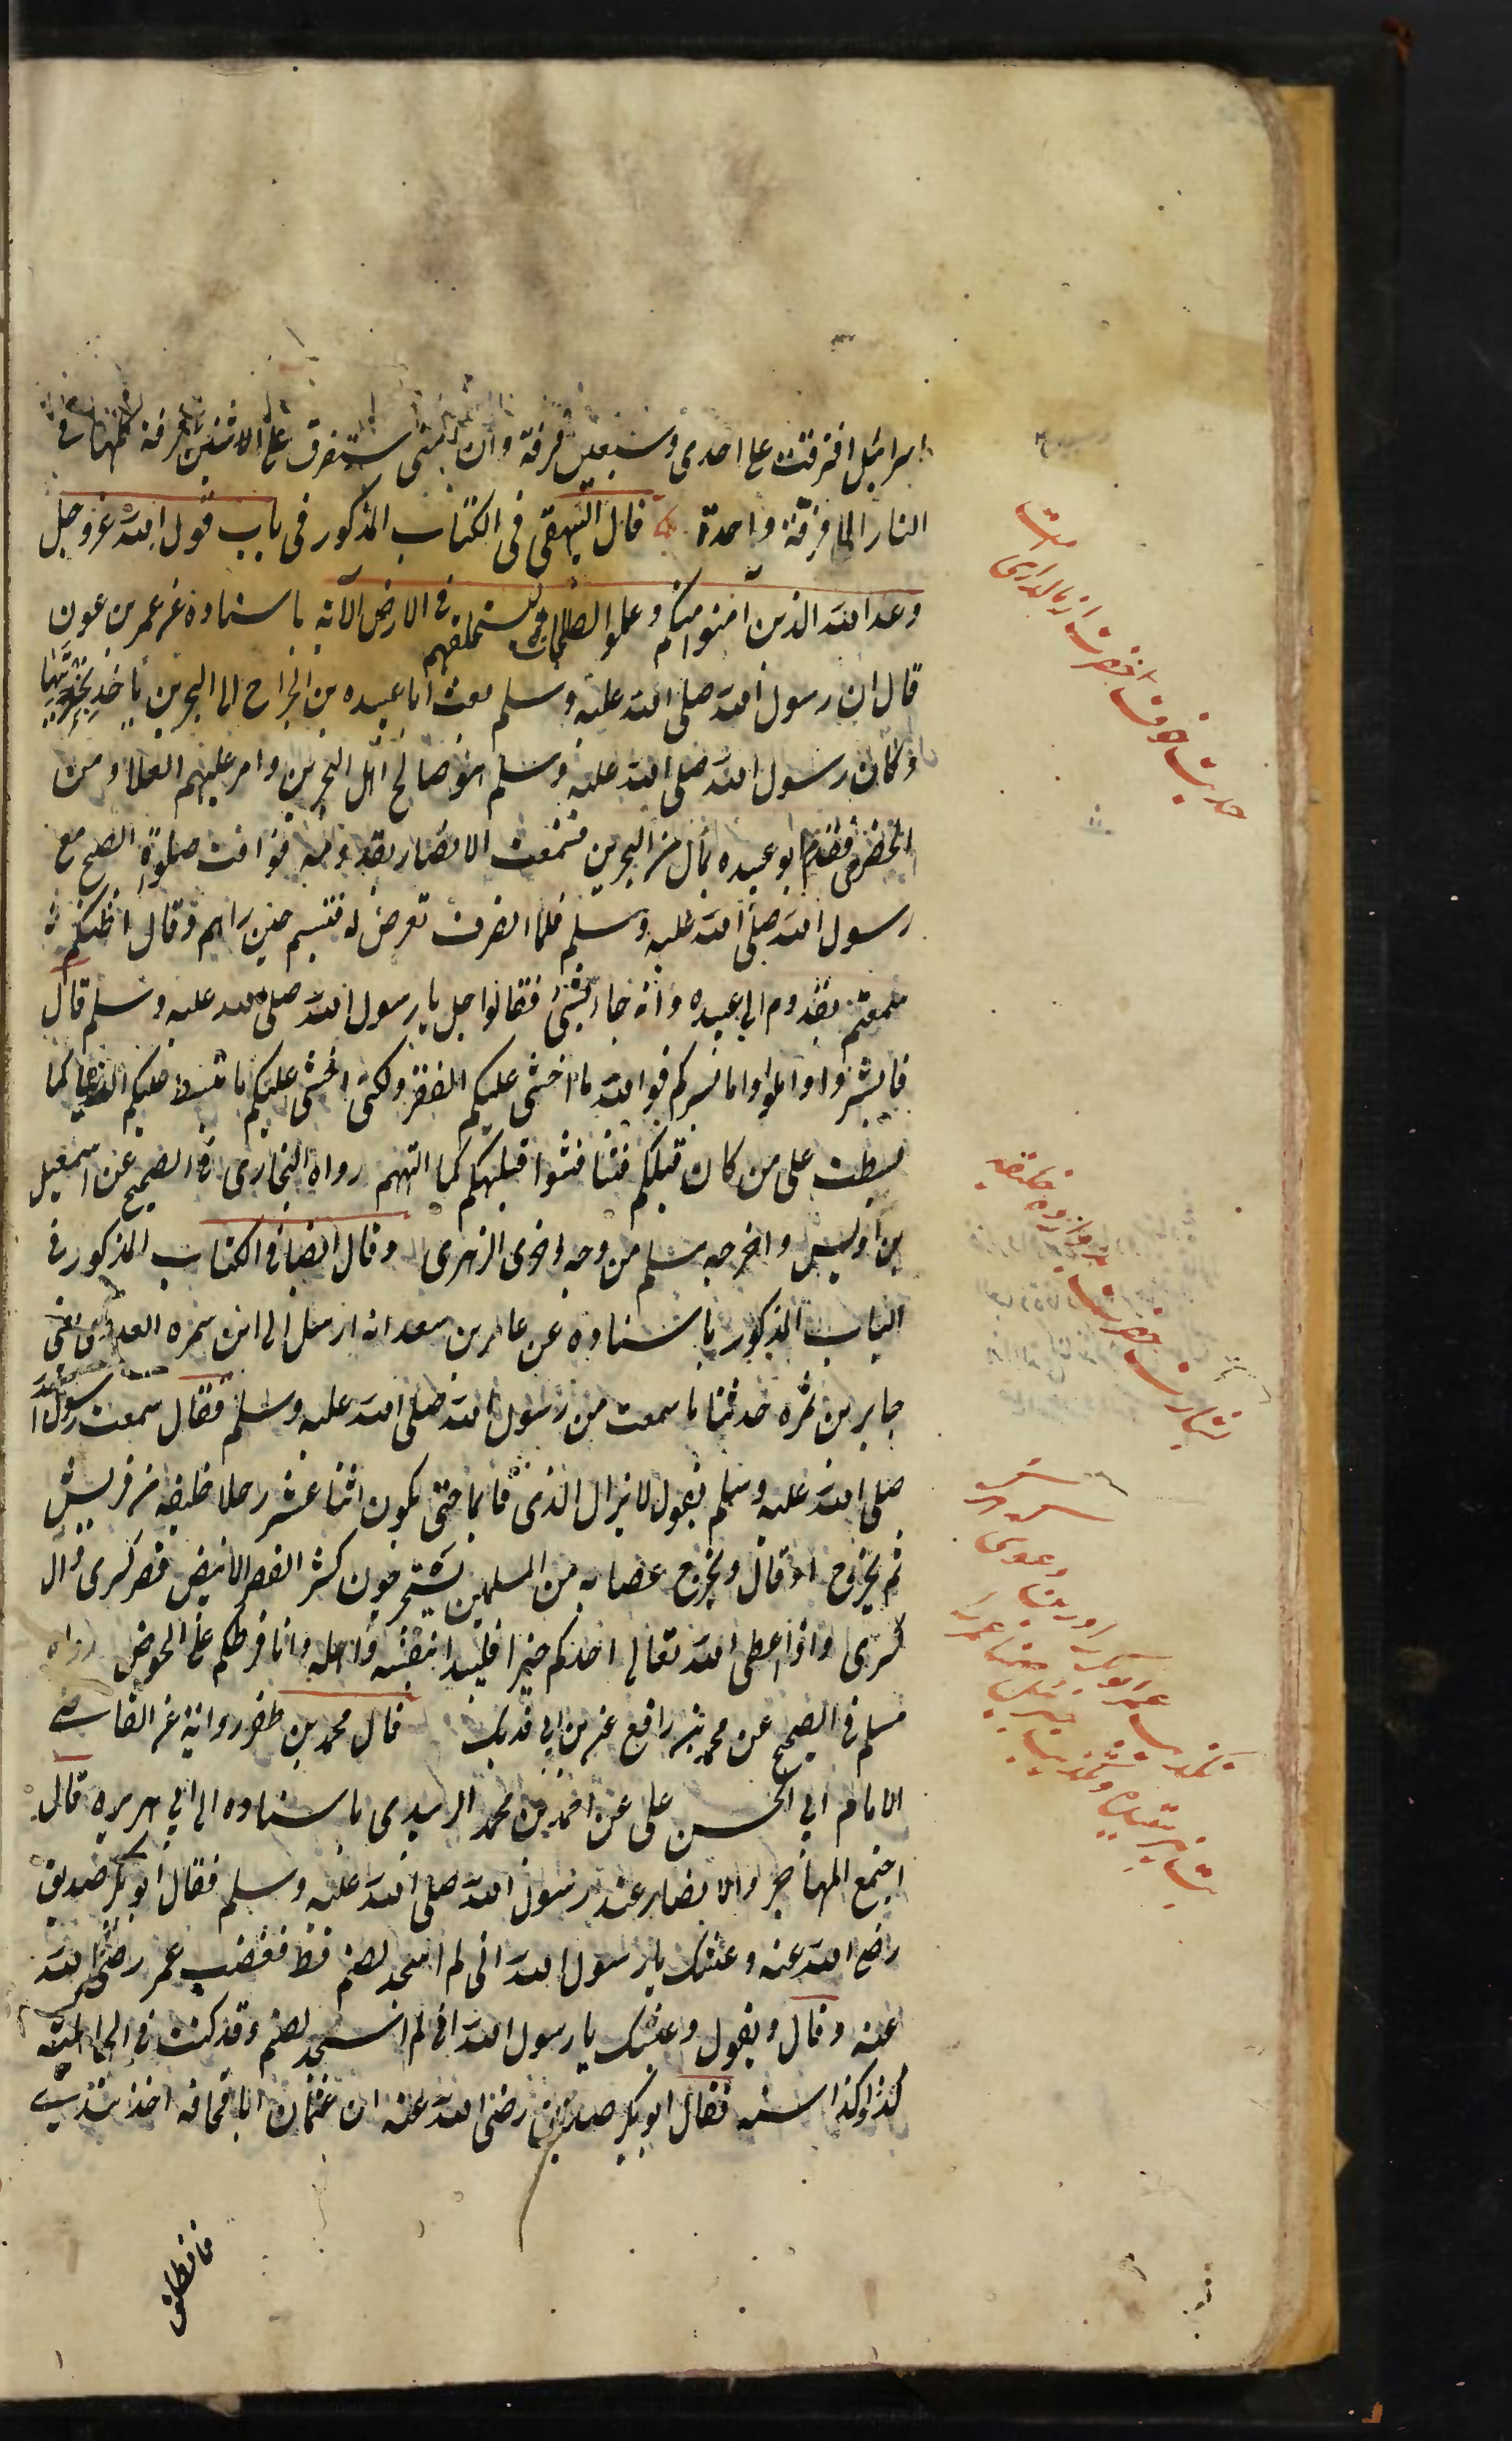 اسرائيل افترقت على احدى وسبعين فرقة وان امتى ستفرق على اثنين فرقة كلها فى
النار الا فرقة واحدة قال البيهقى فى الكتاب المذكور فى باب قول الله عز وجل
وعد الله الذين آمنوا منكم وعملوا الصالحات ليستخلفهم فى الارض الآية باسناده عن عمر بن عون
قال ان رسول الله صلى الله عليه وسلم بعث ابا عبيده بن الجراح الى البحرين ياخذ بجزيتها
وكان رسول الله صلى الله عليه وسلم هو صالح اهل البحرين وامر عليهم العلاء من
الحضرمى فقدم ابو عبيده بمال من البحرين فسمعت الانصار بقدومه فوافت صلوة الصبح مع
رسول الله صلى الله عليه وسلم فلما انصرف تعرض له فتبسم حين راهم وقال اظنكم
سمعتم بقدوم ابى عبيده وانه جاء بشئ فقالوا اجل يا رسول الله صلى الله عليه وسلم قال
فابشروا واملوا ما يسركم فوالله ما اخشى عليكم الفقر ولكنى اخشى عليكم ما تبسط عليكم الدنيا كما
بسطت على من كان قبلكم فتنافسوا قبلهكم كما التهتهم رواه البخارى فى الصحيح عن اسمعيل
بن اويس واخرجه مسلم من وجه اخرى الزهرى وقال ايضا فى الكتاب المذكور فى
الباب المذكور باسناده عن عامر بن سعد انه ارسل الى ابن سمره العدوى اعنى
جابر بن سمره حدثنا ما سمعت من رسول الله صلى الله عليه وسلم فقال سمعت رسول الله
صلى الله عليه وسلم يقول لا يزال الدين قائما حتى يكون اثنا عشر رجلا خليفه من قريش
ثم يخرج او قال ويخرج عصابه من المسلمين يستخرجون كنز القصر الابيض قصر كسرى وال
كسرى واذا اعطى الله تعالى احدكم خيرا فليبدا بنفسه واهله وانا فرطكم على الحوض رواه
مسلم فى الصحيح عن محمد بن رافع عن بن ابى فديك قال محمد بن ظفر رواية عن القاضى
الامام ابى الحسن على عن احمد بن محمد الزبيدى باسناده الى ابى هريره قال
اجتمع المهاجر والانصار عند رسول الله صلى الله عليه وسلم فقال ابو بكر صديق
رضى الله عنه وعيشك يا رسول الله انى لم اسجد لصنم قط فغضب عمر رضى الله
عنه وقال ويقول وعيشك يا رسول الله انى لم اسجد لصنم وقد كنت فى الجاهلية
كذا وكذا سنه فقال ابو بكر صديق رضى الله عنه ان عثمان ابا قحافه اخذ بيدى
فانطلق
حديث خوف آنحضرت از مالدارى امت
بشارت آنحضرت بدوازده خليفه